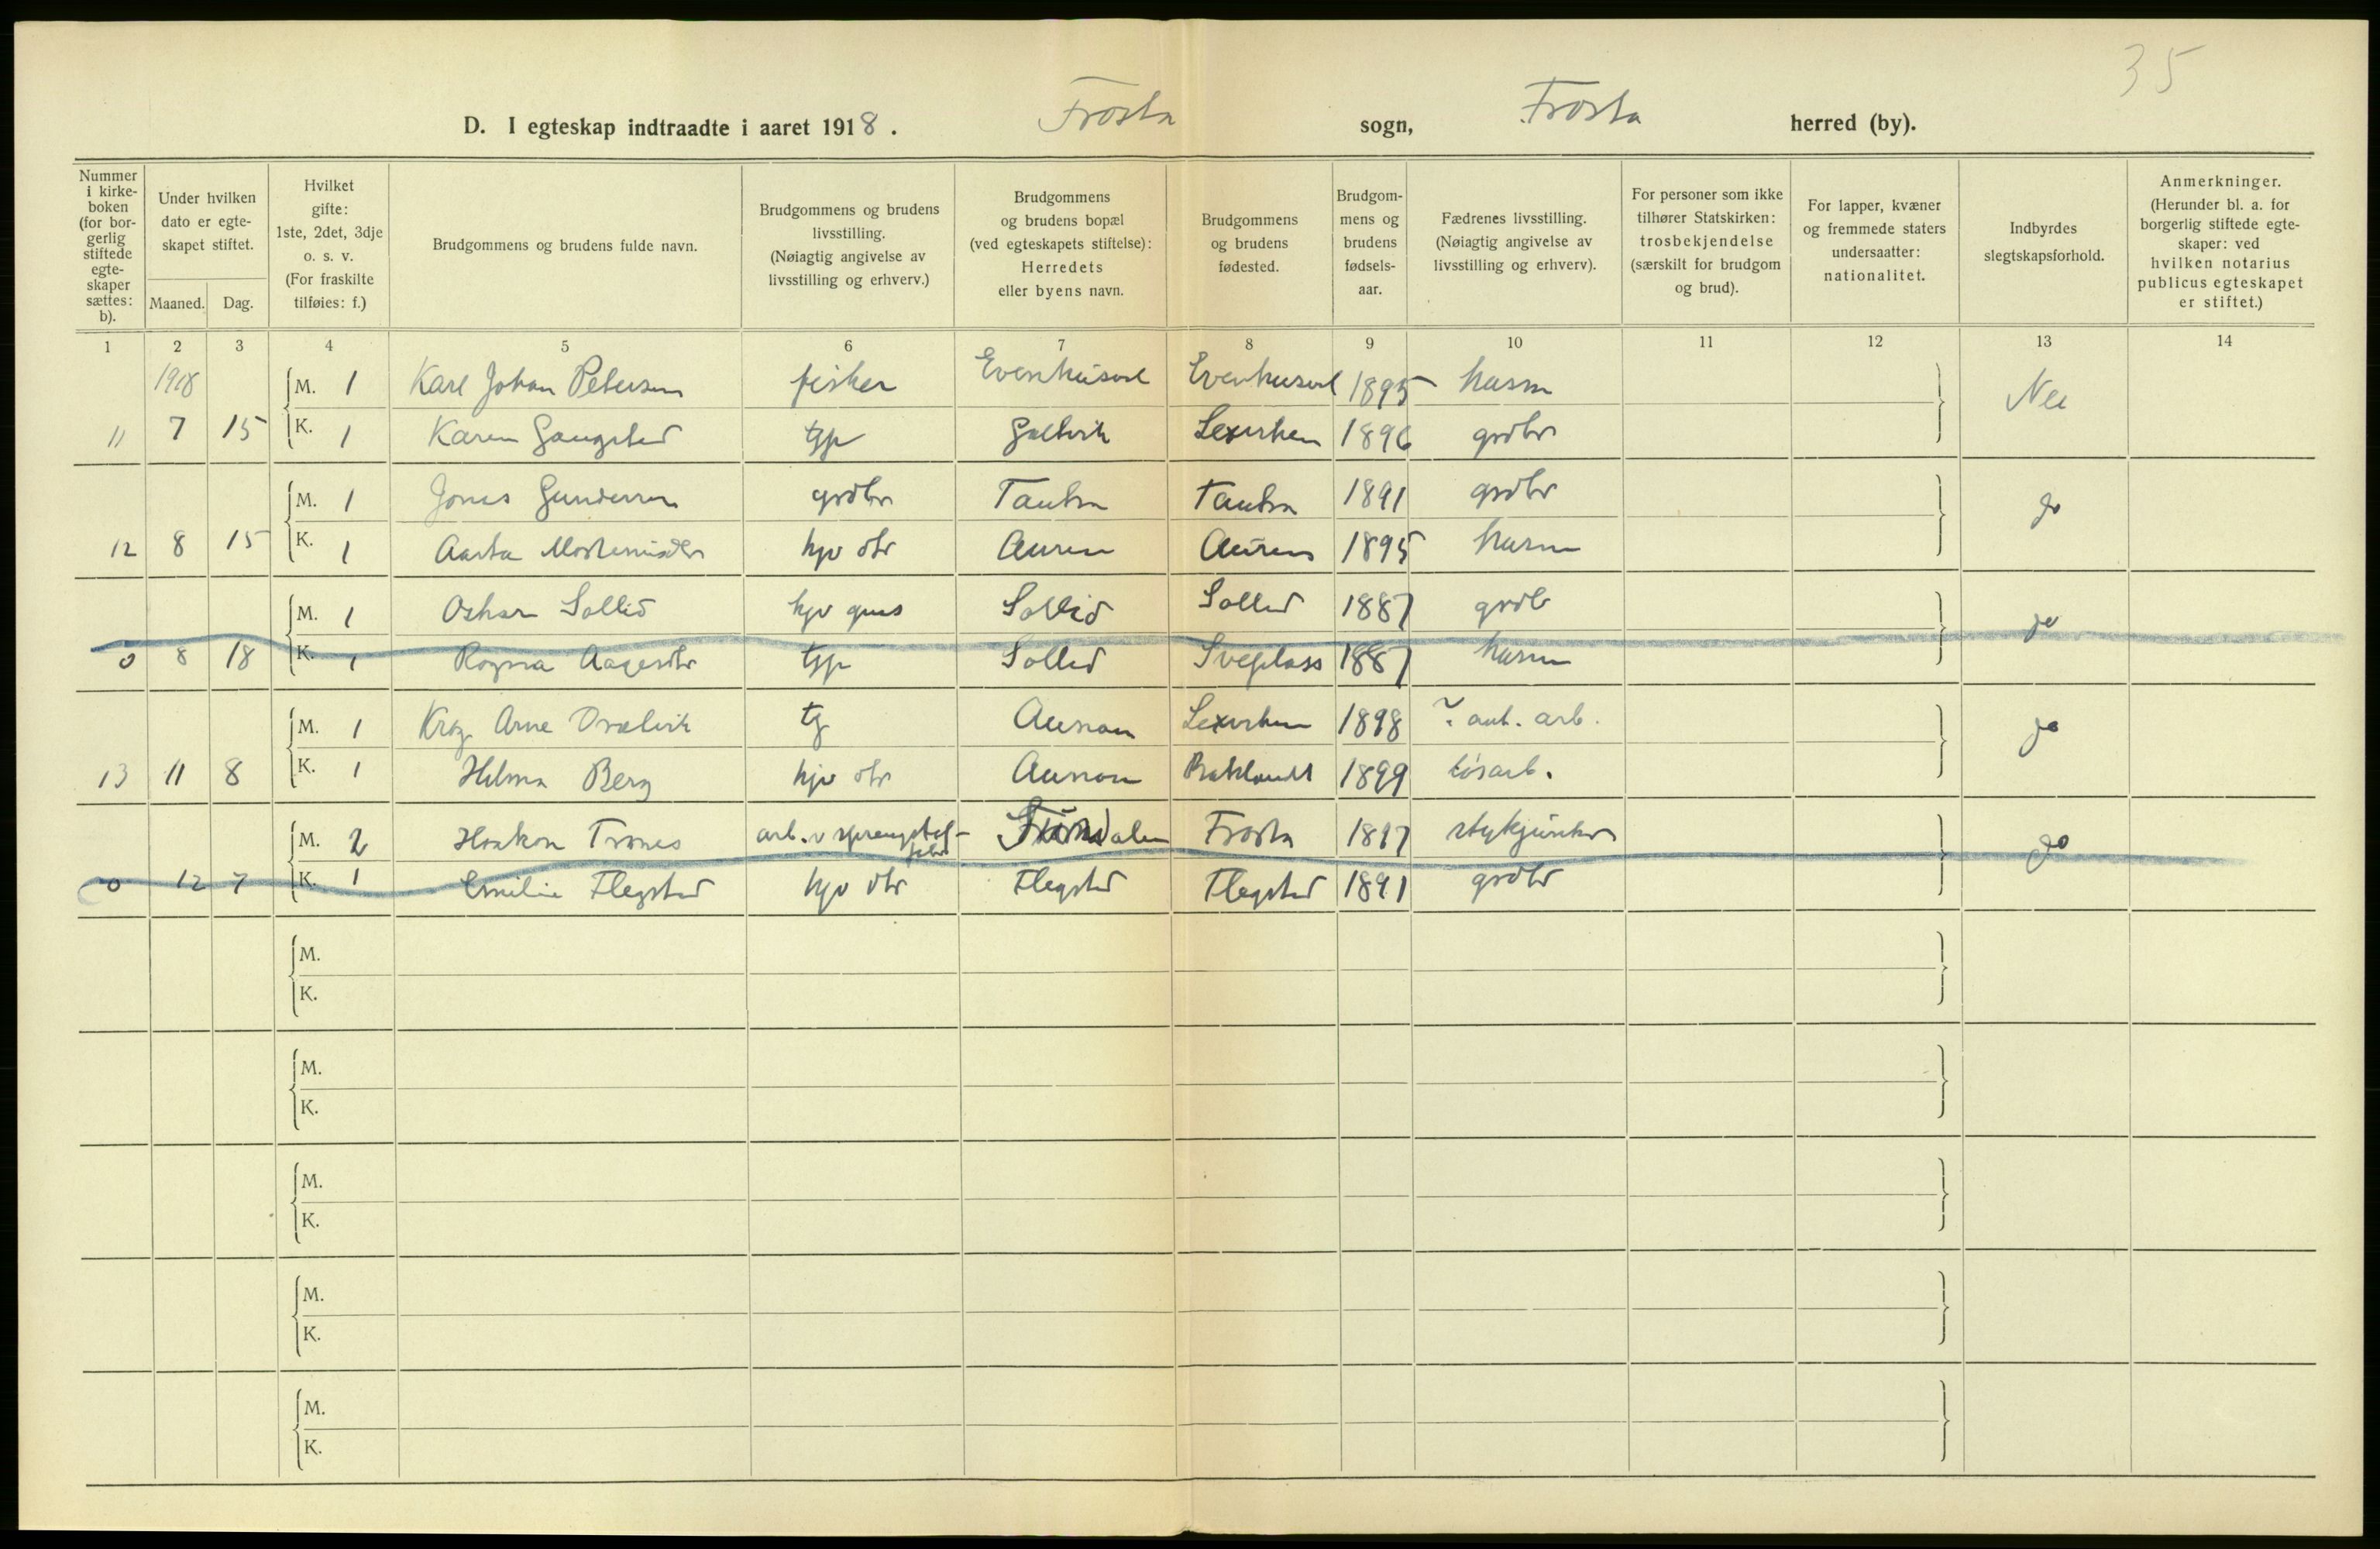 35
D. I egteskap indtraadte i aaret 1918. Frosta sogn, Frosta herred (by).
Nummer i kirkeboken (for borgerlig stiftede egteskaper sættes: b).
Under hvilken dato er egteskapet stiftet.
Maaned. Dag.
Hvilket gifte: 1ste, 2det, 3dje o. s. v. (For fraskilte tilføies: f.)
Brudgommens og brudens fulde navn.
Brudgommens og brudens livsstilling. (Nøiagtig angivelse av livsstilling og erhverv.)
Brudgommens og brudens bopæl (ved egteskapets stiftelse): Herredets eller byens navn.
Brudgommens og brudens fødested.
Brudgommens og brudens fødselsaar.
Fædrenes livsstilling. (Nøiagtig angivelse av livsstilling og erhverv).
For personer som ikke tilhører Statskirken: trosbekjendelse (særskilt for brudgom og brud).
For lapper, kvæner og fremmede staters undersaatter: nationalitet.
Indbyrdes slegtskapsforhold.
Anmerkninger. (Herunder bl. a. for borgerlig stiftede egteskaper: ved hvilken notarius publicus egteskapet er stiftet.)
1 2 3 4 5 6 7 8 9 10 11 12 13 14
1918 M. 1 Karl Johan Petersen fisker Evenhusvd Evenhusvd 1895 husm Nei
11 7 15 K. 1 Karen Gaugstad tjp Galtvik Lexviken 1896 grdbr
M. 1 Jonas Gundersen grdbr Tautra Tautra 1891 grdbr
12 8 15 K. 1 Aasta hjv dtr Auren Auren 1895 husm
M. 1 Oskar Sollid hjv Sollid Sollid 1887 grdb
0 8 18 K. 1 Ragna Aagesdtr tjp Sollid Sveplass 1887 husm
M. 1 Arne tg Aunan Lexviken 1898 ? anl. arb.
13 11 8 K. 1 Helma Berg hjv dtr Aunan 1899 løsarb.
M. 2 Haakon Trones arb. v sprengstof- Frosta 1897 stykjunker
fabr
0 12 7 K. 1 Emilie Flegstad hjv dtr Flegstad Flegstad 1891 grdbr
M.
K.
M.
K.
M.
K.
M.
K.
M.
K.